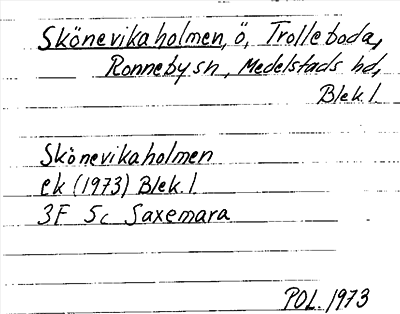 Skönevikaholmen, ö, Trolleboda,
Ronneby sn, Medelstads hd,
Blek.l.
Skönevikaholmen
ek (1973) Blek.l.
3F 5c Saxemara
POL. 1973